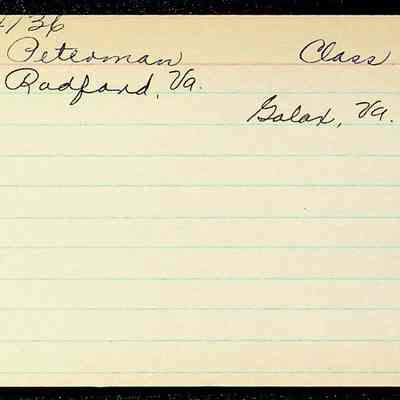 4/36
Peterman Class
Radford, Va.
Galax, Va.